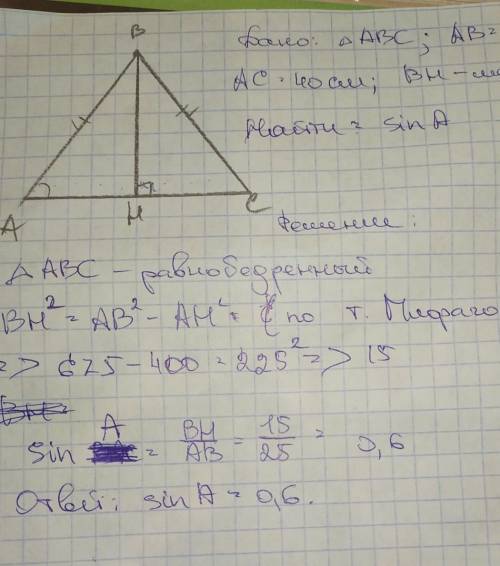 B
Дано: △ABC; AB=
AC=40 см; BH-
Найти = sin A
A
H
C
Решение:
△ABC - равнобедренный
BH² = AB² - AH² = по т. Пифаго
=> 625 - 400 = 225² => 15
sin A = BH/AB = 15/25 = 0,6
Ответ: sin A = 0,6.